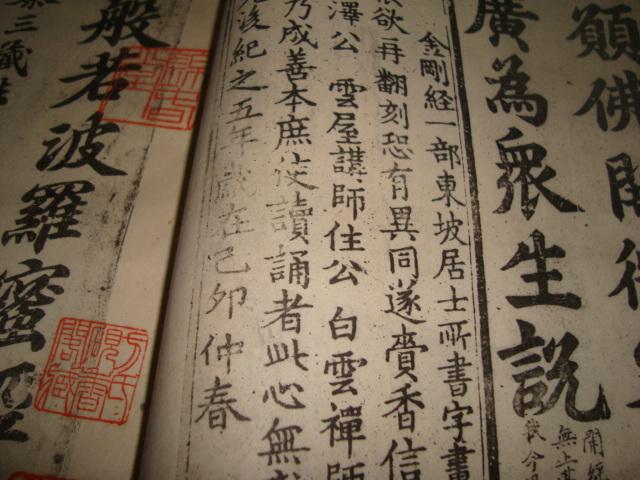 願佛開
廣為衆生說
開
無上甚
我今
金剛經一部東坡居士所書字畫
欲再翻刻恐有異同遂賫香信
澤公 雲屋講師住公 白雲禪師
乃成善本庶使讀誦者此心無
後紀之五年歲在己卯仲春
三藏
般若波羅蜜經